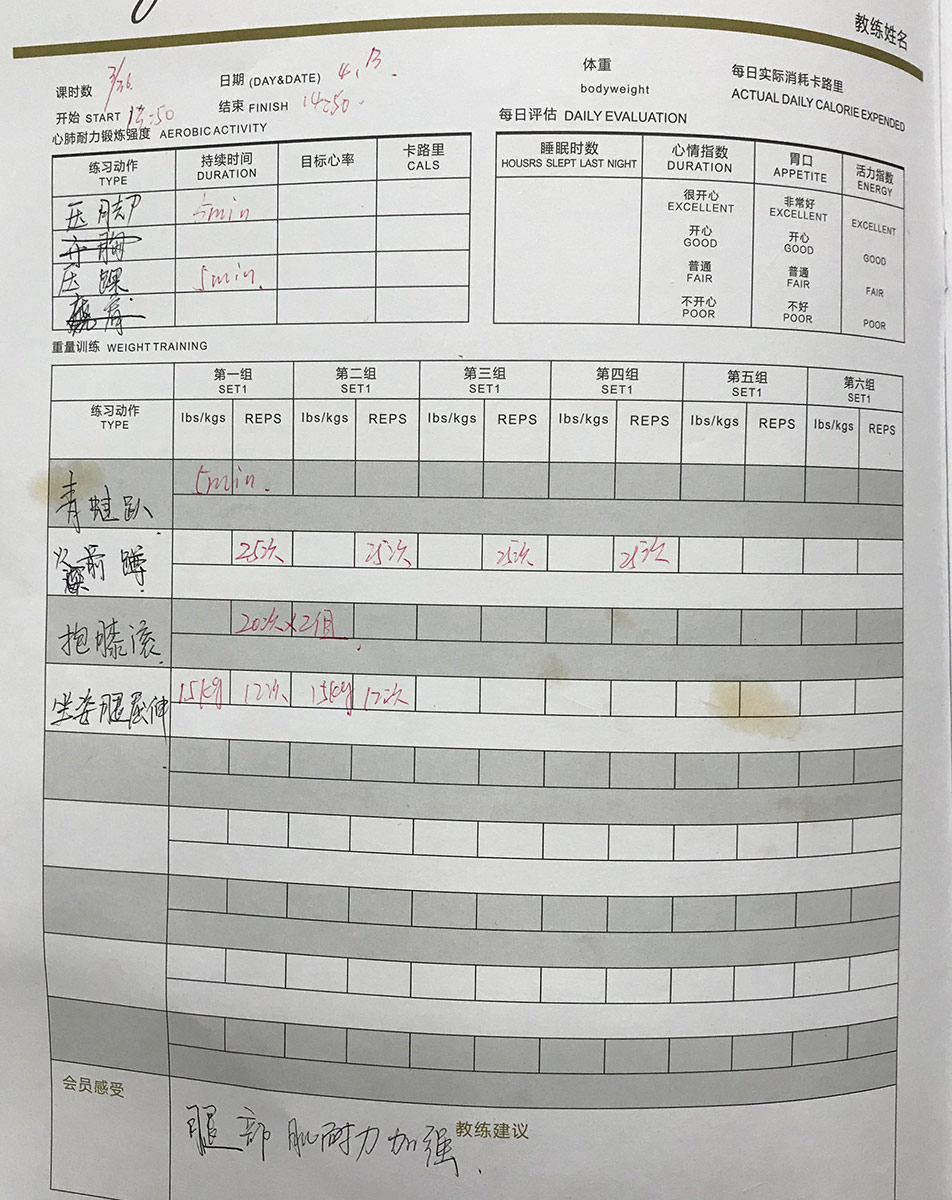 教练姓名
课时数 3/36
日期 (DAY&DATE) 4.13.
体重
bodyweight
每日实际消耗卡路里
ACTUAL DAILY CALORIE EXPENDED
开始 START
结束 FINISH 14:50.
心肺耐力锻炼强度 AEROBIC ACTIVITY
每日评估 DAILY EVALUATION
练习动作 持续时间 目标心率 卡路里
TYPE DURATION CALS
压脚 5min
开胸
压踝 5min.
睡眠时数 心情指数 胃口 活力指数
HOUSRS SLEPT LAST NIGHT DURATION APPETITE ENERGY
很开心 非常好
EXCELLENT EXCELLENT EXCELLENT
开心 开心
GOOD GOOD GOOD
普通 普通
FAIR FAIR FAIR
不开心 不好
POOR POOR POOR
重量训练 WEIGHT TRAINING
第一组 第二组 第三组 第四组 第五组 第六组
SET1 SET1 SET1 SET1 SET1 SET1
练习动作
TYPE
lbs/kgs REPS lbs/kgs REPS lbs/kgs REPS lbs/kgs REPS lbs/kgs REPS lbs/kgs REPS
青蛙趴. 5min.
前蹲. 25次 25次 25次 25次
抱膝滚. 20次x2组.
坐姿腿屈伸 15kg 12次 15kg 12次
会员感受
腿部肌耐力加强.
教练建议